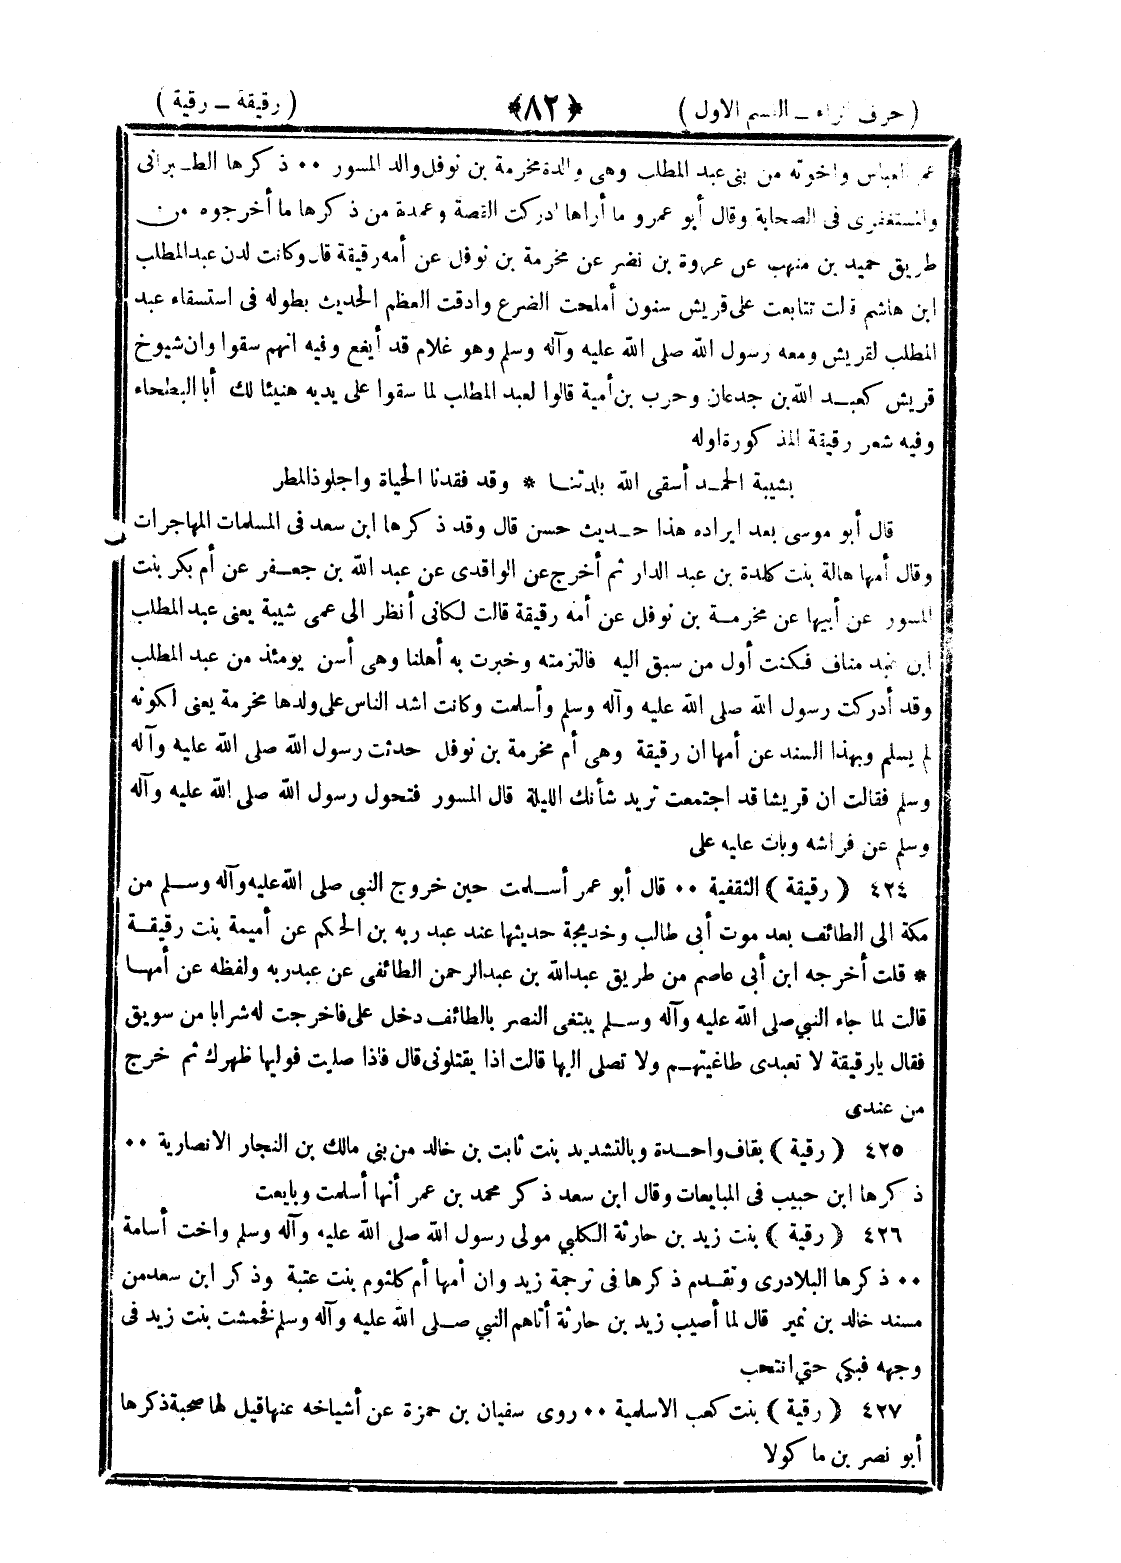 ( حرف الراء ــ القسم الاول ) ﴿٨٢﴾ ( رقيقة ــ رقية )
عم العباس واخوته من بنى عبد المطلب وهى والدة مخرمة بن نوفل والد المسور ٠٠ ذكرها الطبرانى
والمستغفرى فى الصحابة وقال أبو عمرو ما أراها ادركت القصة وعمدة من ذكرها ما أخرجوه من
طريق حميد بن منهب عن عروة بن نضر عن مخرمة بن نوفل عن أمه رقيقة قال وكانت لدن عبد المطلب
ابن هاشم قالت تتابعت على قريش سنون أملحت الضرع وادقت العظم الحديث بطوله فى استسقاء عبد
المطلب لقريش ومعه رسول الله صلى الله عليه وآله وسلم وهو غلام قد أيفع وفيه انهم سقوا وان شيوخ
قريش كعبد الله بن جدعان وحرب بن أمية قالوا لعبد المطلب لما سقوا على يديه هنيئا لك أبا البطحاء
وفيه شعر رقيقة المذكورة اوله
بشيبة الحمد أسقى الله بلدتنا * وقد فقدنا الحياة واجلوذ المطر
قال أبو موسى بعد ايراده هذا حديث حسن قال وقد ذكرها ابن سعد فى المسلمات المهاجرات
وقال أمها هالة بنت كلدة بن عبد الدار ثم أخرج عن الواقدى عن عبد الله بن جعفر عن أم بكر بنت
المسور عن أبيها عن مخرمة بن نوفل عن أمه رقيقة قالت لكانى أنظر الى عمى شيبة يعنى عبد المطلب
ابن عبد مناف فكنت أول من سبق اليه فالتزمته وخبرت به أهلنا وهى أسن يومئذ من عبد المطلب
وقد أدركت رسول الله صلى الله عليه وآله وسلم وأسلمت وكانت اشد الناس على ولدها مخرمة يعنى لكونه
لم يسلم وبهذا السند عن أمها ان رقيقة وهى أم مخرمة بن نوفل حدثت رسول الله صلى الله عليه وآله
وسلم فقالت ان قريشا قد اجتمعت تريد شأنك الليلة قال المسور فتحول رسول الله صلى الله عليه وآله
وسلم عن فراشه وبات عليه على
٤٢٤ ( رقيقة ) الثقفية ٠٠ قال أبو عمر أسلمت حين خروج النبي صلى الله عليه وآله وسلم من
مكة الى الطائف بعد موت أبى طالب وخديجة حديثها عند عبد ربه بن الحكم عن أميمة بنت رقيقة
* قلت أخرجه ابن أبى عاصم من طريق عبدالله بن عبدالرحمن الطائفى عن عبدربه ولفظه عن أمها
قالت لما جاء النبي صلى الله عليه وآله وسلم يبتغى النصر بالطائف دخل على فاخرجت له شرابا من سويق
فقال يارقيقة لا تعبدى طاغيتهم ولا تصلى اليها قالت اذا يقتلونى قال فاذا صليت فوليها ظهرك ثم خرج
من عندى
٤٢٥ ( رقية ) بقاف واحدة وبالتشديد بنت ثابت بن خالد من بنى مالك بن النجار الانصارية ٠٠
ذكرها ابن حبيب فى المبايعات وقال ابن سعد ذكر محمد بن عمر أنها أسلمت وبايعت
٤٢٦ ( رقية ) بنت زيد بن حارثة الكلبي مولى رسول الله صلى الله عليه وآله وسلم واخت أسامة
٠٠ ذكرها البلاذرى وتقدم ذكرها فى ترجمة زيد وان أمها أم كلثوم بنت عتبة وذكر ابن سعد من
مسند خالد بن نمير قال لما أصيب زيد بن حارثة أتاهم النبي صلى الله عليه وآله وسلم فخمشت بنت زيد فى
وجهه فبكى حتي انتحب
٤٢٧ ( رقية ) بنت كعب الاسلمية ٠٠ روى سفيان بن حمزة عن أشياخه عنها قيل لها صحبة ذكرها
أبو نصر بن ماكولا